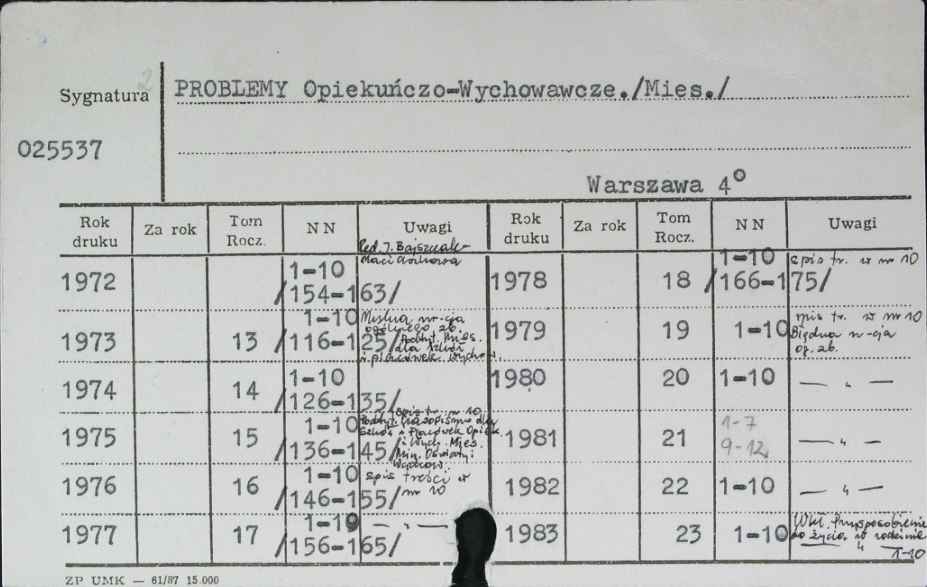 2
Sygnatura
PROBLEMY Opiekuńczo-Wychowawcze./Mies./
025537
Warszawa 4°
Rok druku Za rok Tom Rocz. N N Uwagi Rok druku Za rok Tom Rocz. N N Uwagi
Red. J.
1972 1-10 /154-163/ 1978 18 1-10 /166-175/ spis tr. w nr 10
1973 13 1-10 /116-125/ 1979 19 1-10 spis tr. w nr 10 Błędna n-cja og. zb.
1974 14 1-10 /126-135/ 1980 20 1-10 — „ —
1975 15 1-10 /136-145/ spis tr. w nr 10 1981 21 1-7 9-12, — „ —
1976 16 1-10 /146-155/ spis treści w nr 10 1982 22 1-10 — „ —
1977 17 1-10 /156-165/ — „ — 1983 23 1-10 Wkł. Przysposobienie do życia w rodzinie „ 1-10
ZP UMK — 61/87 15.000